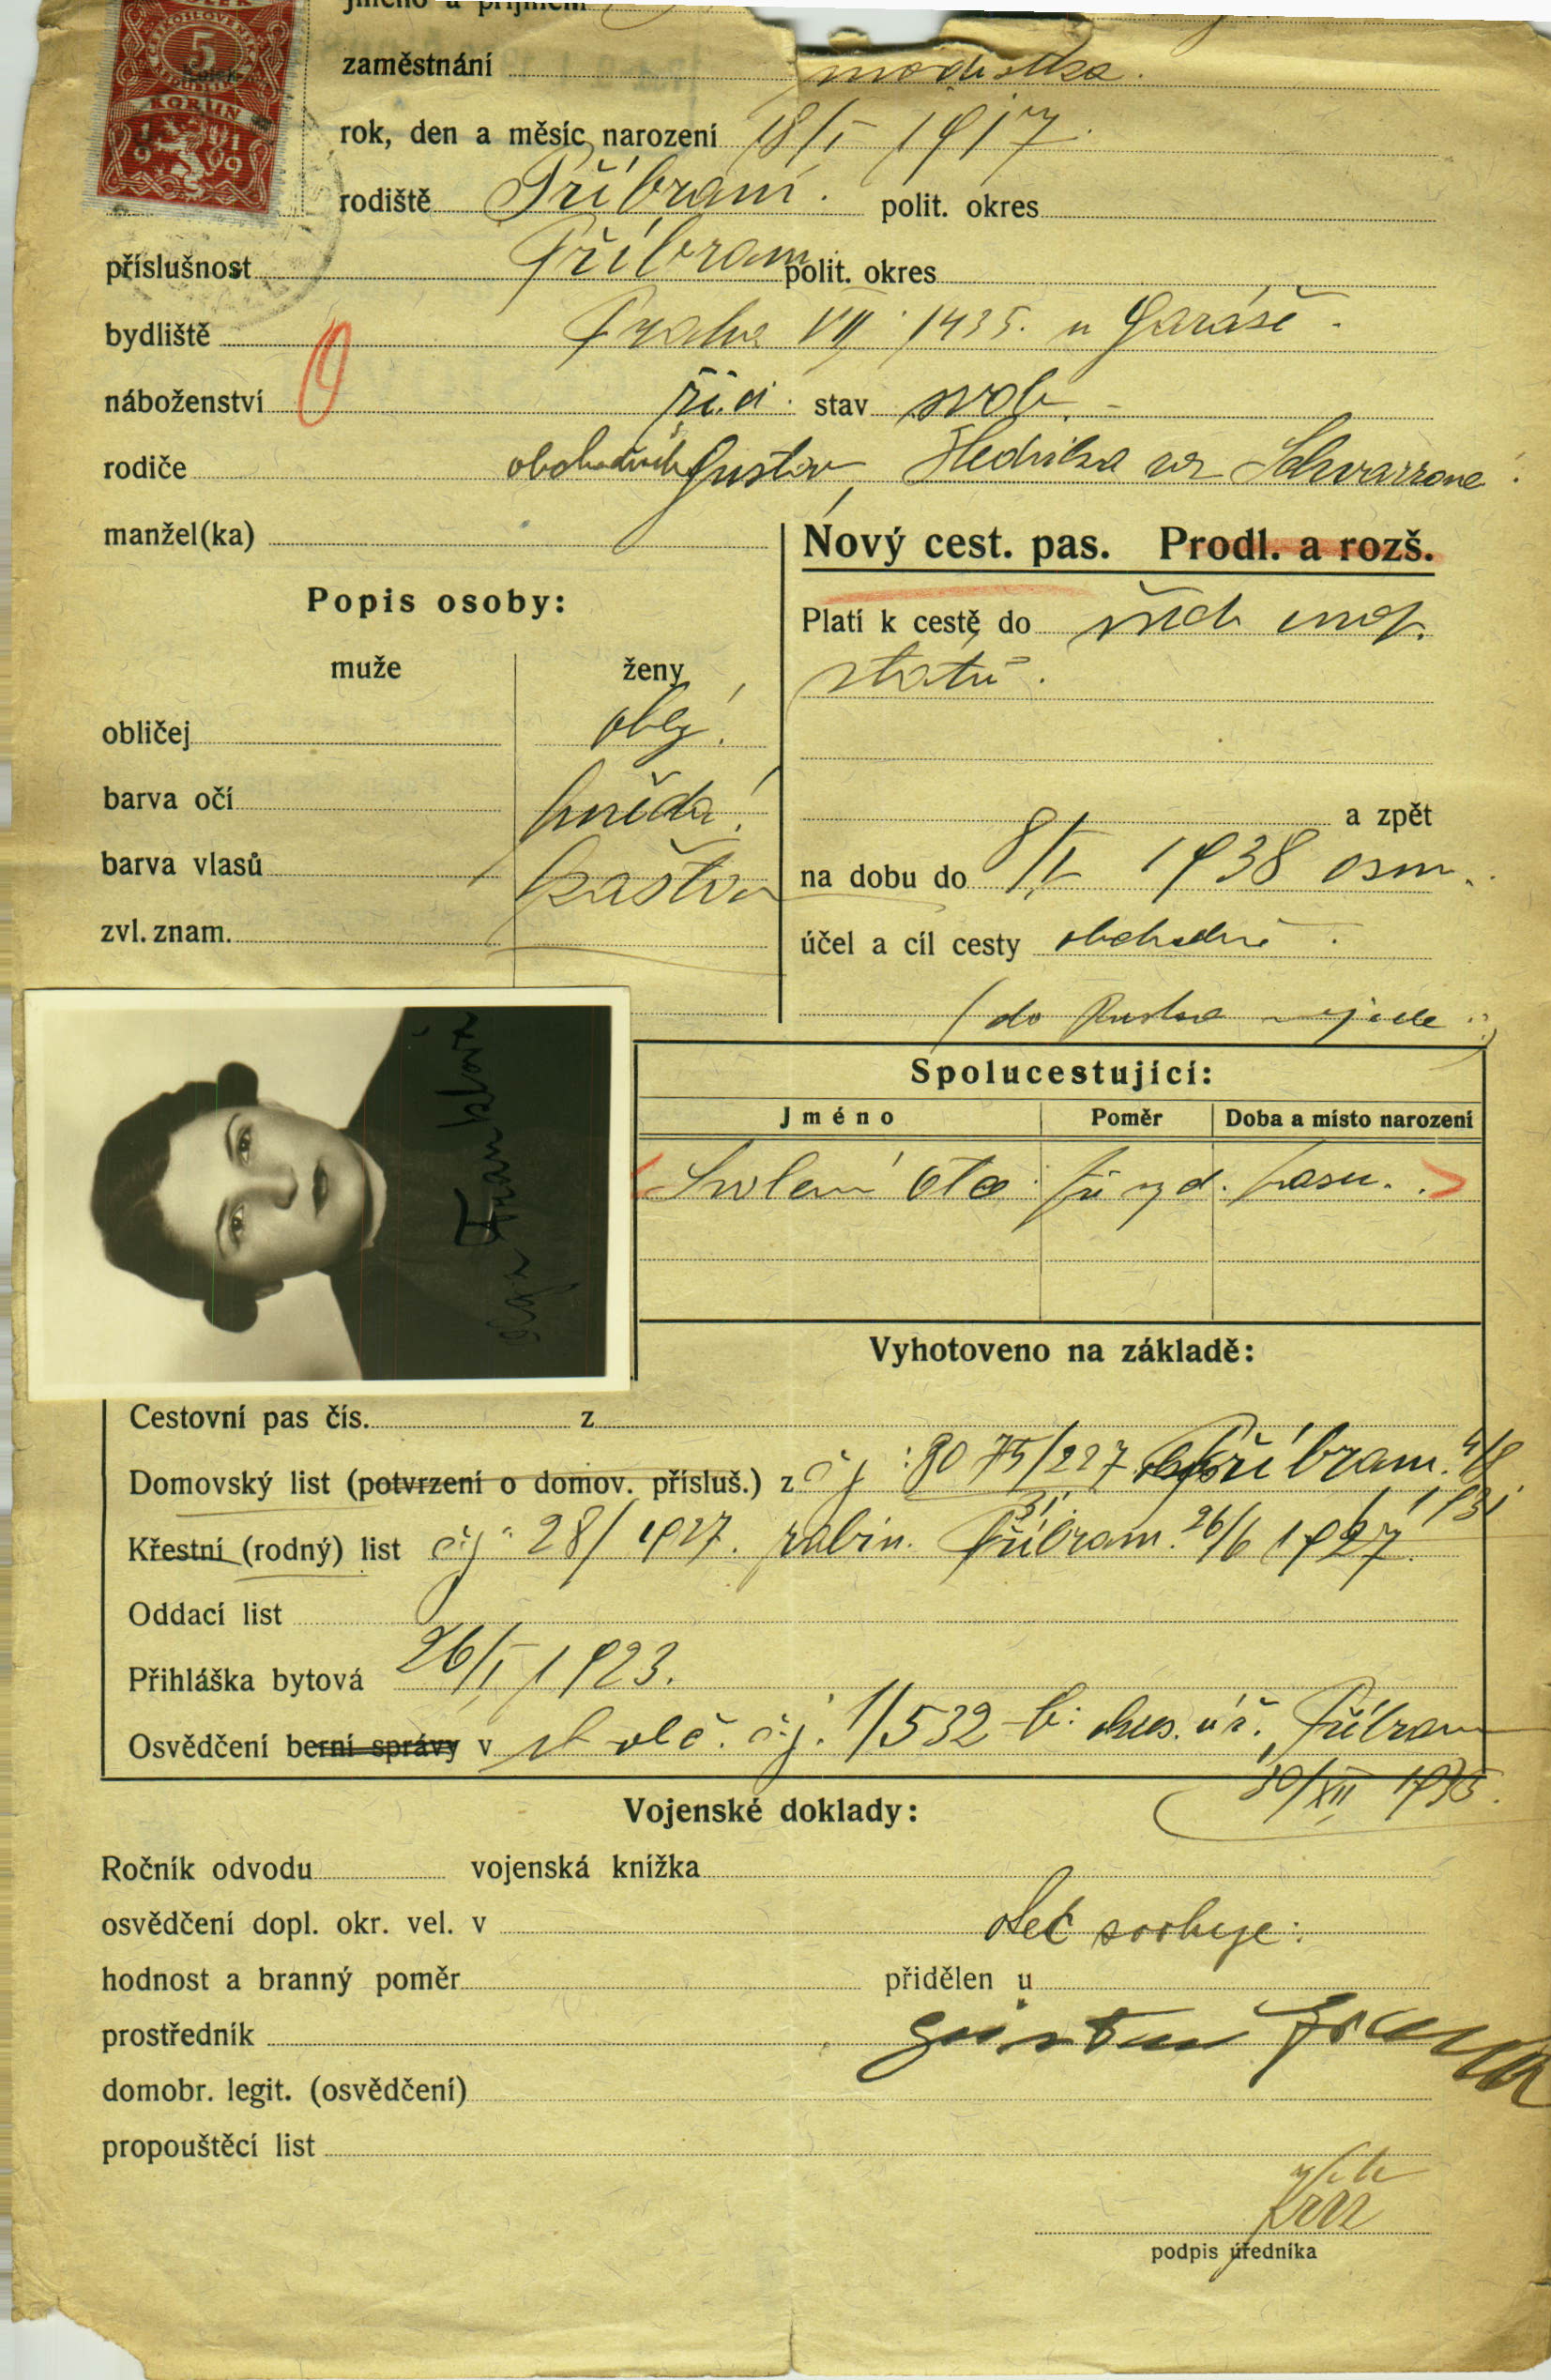 jméno a příjmení
KOLEK
ČESKOSLOVENSKÁ
5
KORUN
1919
zaměstnání modistka.
rok, den a měsíc narození 18/I 1917.
rodiště Příbram. polit. okres
příslušnost Příbram polit. okres
bydliště Praha VII 1435. u Garáše.
náboženství stav svob.
rodiče obchodník Gustav, Hedvika roz Schwarzová.
manžel(ka)
Popis osoby:
muže ženy
obličej oblý
barva očí hnědá
barva vlasů kaštan
zvl. znam.
Nový cest. pas. Prodl. a rozš.
Platí k cestě do všech evrop.
států.
a zpět
na dobu do 8/I 1938 osm.
účel a cíl cesty obchodně.
(do Ruska nejede.)
Olga Franklová
Spolucestující:
Jméno Poměr Doba a místo narození
Vyhotoveno na základě:
Cestovní pas čís. z
Domovský list (potvrzení o domov. přísluš.) z čj: 8075/227 Příbram. 4/8
1931
Křestní (rodný) list čj 28/1927. rabin. Příbram. 26/6 1927.
Oddací list
Přihláška bytová 26/I 1923.
Osvědčení berní správy v čj. 1/532 okres. úř. Příbram
30/XII 1935.
Vojenské doklady:
Ročník odvodu vojenská knížka
osvědčení dopl. okr. vel. v
otec svoluje:
hodnost a branný poměr přidělen u
prostředník
domobr. legit. (osvědčení)
propouštěcí list
podpis úředníka